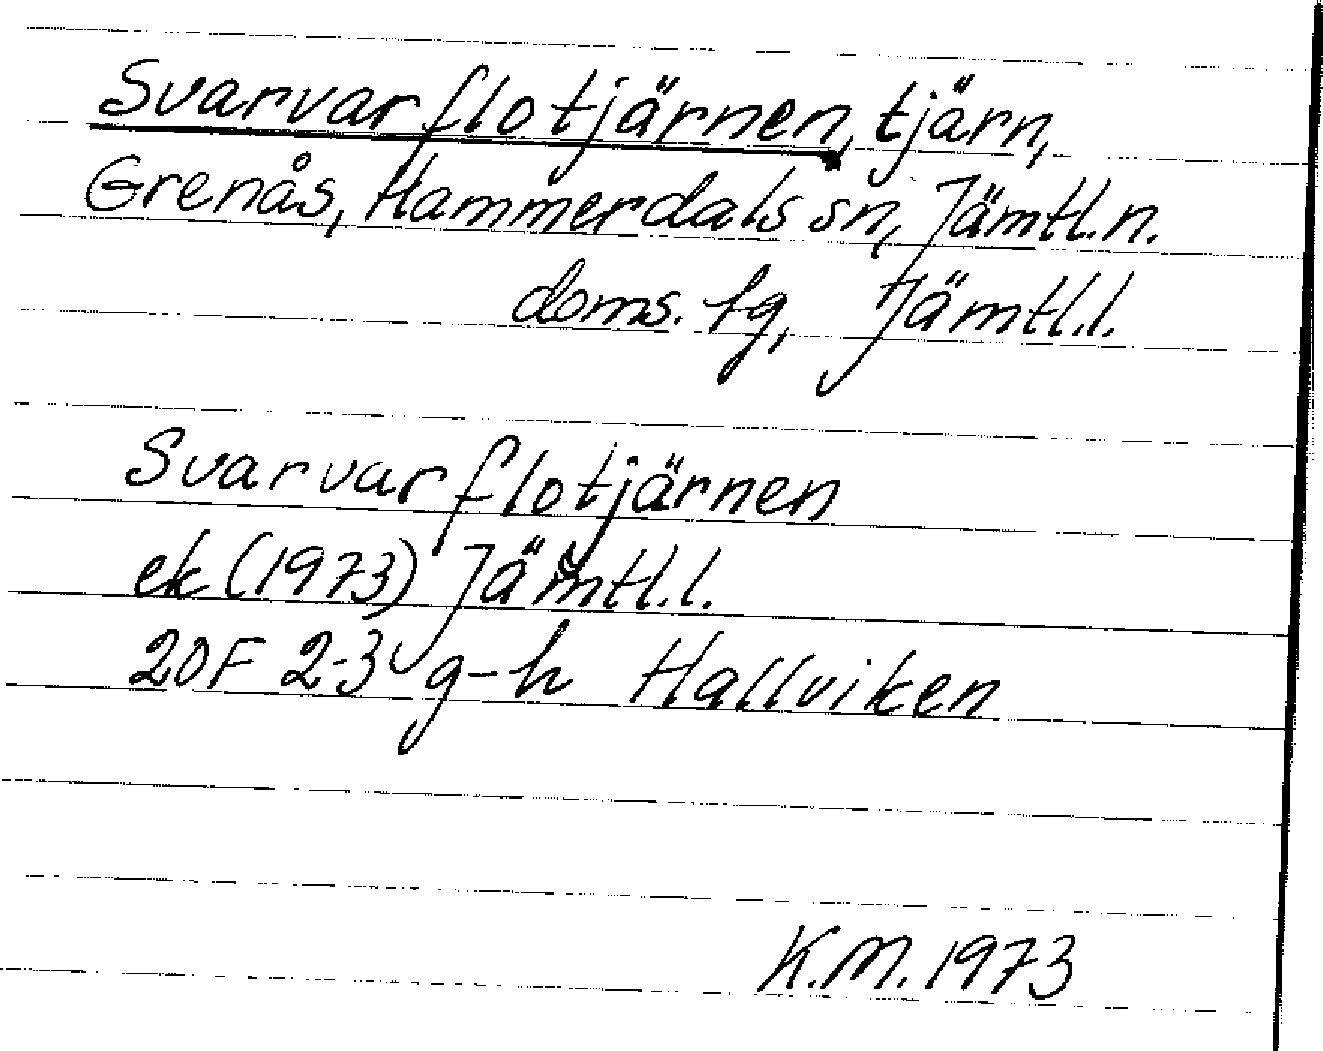 Svarvarflotjärnen, tjärn,
Grenås, Hammerdals sn, Jämtl.n.
doms. tg, Jämtl.l.
Svarvarflotjärnen
ek (1973) Jämtl.l.
20F 2-3 g-h Hallviken
K.M. 1973